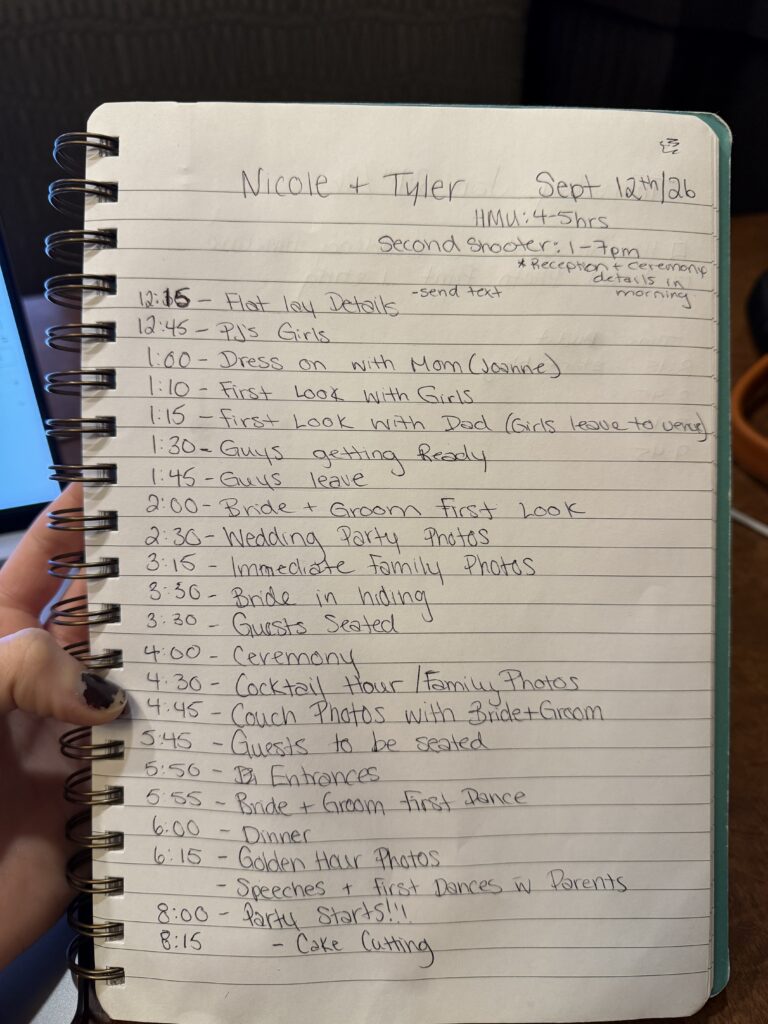 Nicole + Tyler Sept 12th/26
HMU: 4-5hrs
Second Shooter: 1-7pm
* Reception + ceremony
details in
morning
12:15 - Flat lay Details - send text
12:45 - PJ's Girls
1:00 - Dress on with Mom (Joanne)
1:10 - First Look with Girls
1:15 - First Look with Dad (Girls leave to venue)
1:30 - Guys getting Ready
1:45 - Guys leave
2:00 - Bride + Groom First Look
2:30 - Wedding Party Photos
3:15 - Immediate Family Photos
3:30 - Bride in hiding
3:30 - Guests Seated
4:00 - Ceremony
4:30 - Cocktail Hour / Family Photos
4:45 - Couch Photos with Bride + Groom
5:45 - Guests to be seated
5:50 - Entrances
5:55 - Bride + Groom First Dance
6:00 - Dinner
6:15 - Golden Hour Photos
- Speeches + First Dances w Parents
8:00 - Party Starts!!!
8:15 - Cake Cutting